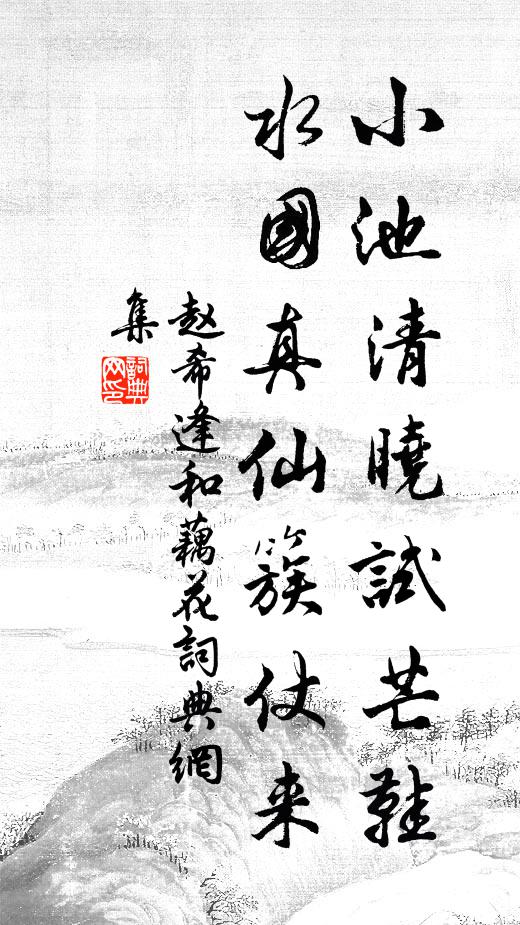 小池清曉試芒鞋
水國真仙簇仗来
赵希逢和藕花詞典網
集
詞典
网印